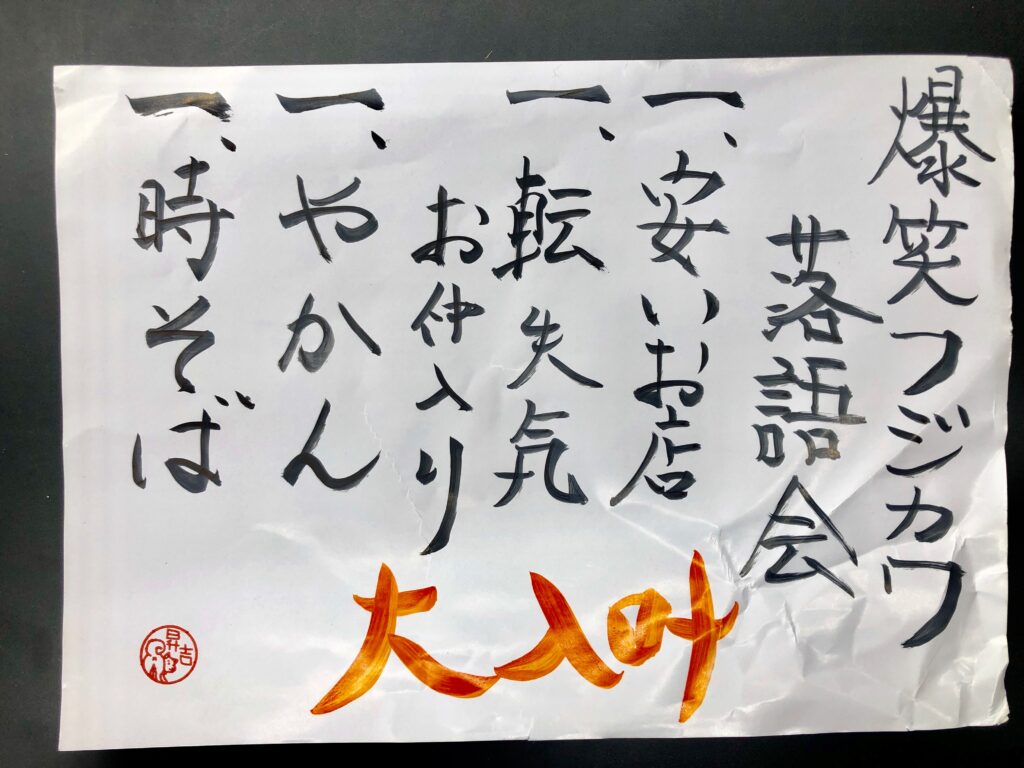 爆笑フジカワ
落語会
一、安いお店
一、転失気
お仲入り
一、やかん
一、時そば
大入叶
昇吉